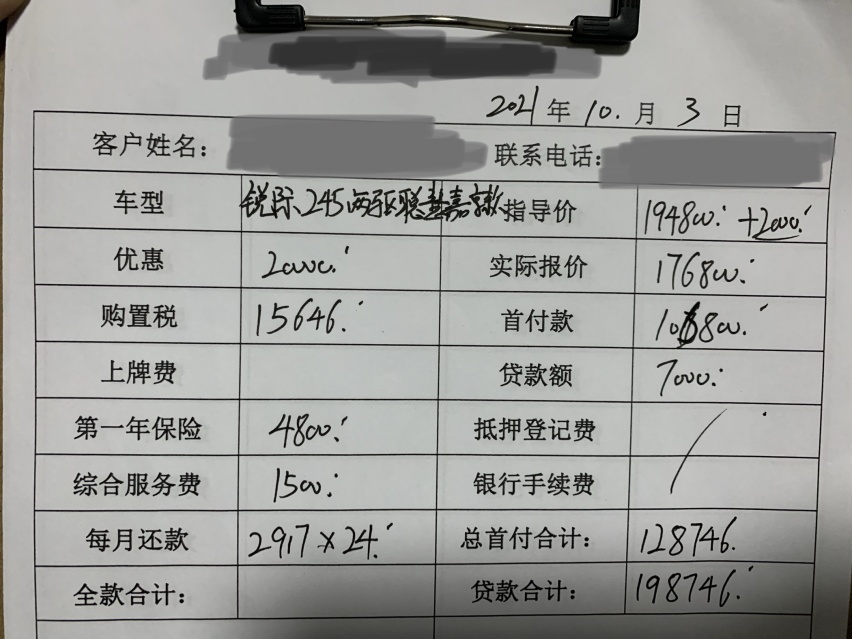 2021年10.月3日
客户姓名： 联系电话：
车型 锐际245两驱聪慧嘉享款 指导价 194800.' +2000.'
优惠 20000.' 实际报价 176800.'
购置税 15646.' 首付款 106800.'
上牌费 贷款额 7000.'
第一年保险 4800.' 抵押登记费
综合服务费 1500.' 银行手续费
每月还款 2917×24.' 总首付合计： 128746.
全款合计： 贷款合计： 198746.'